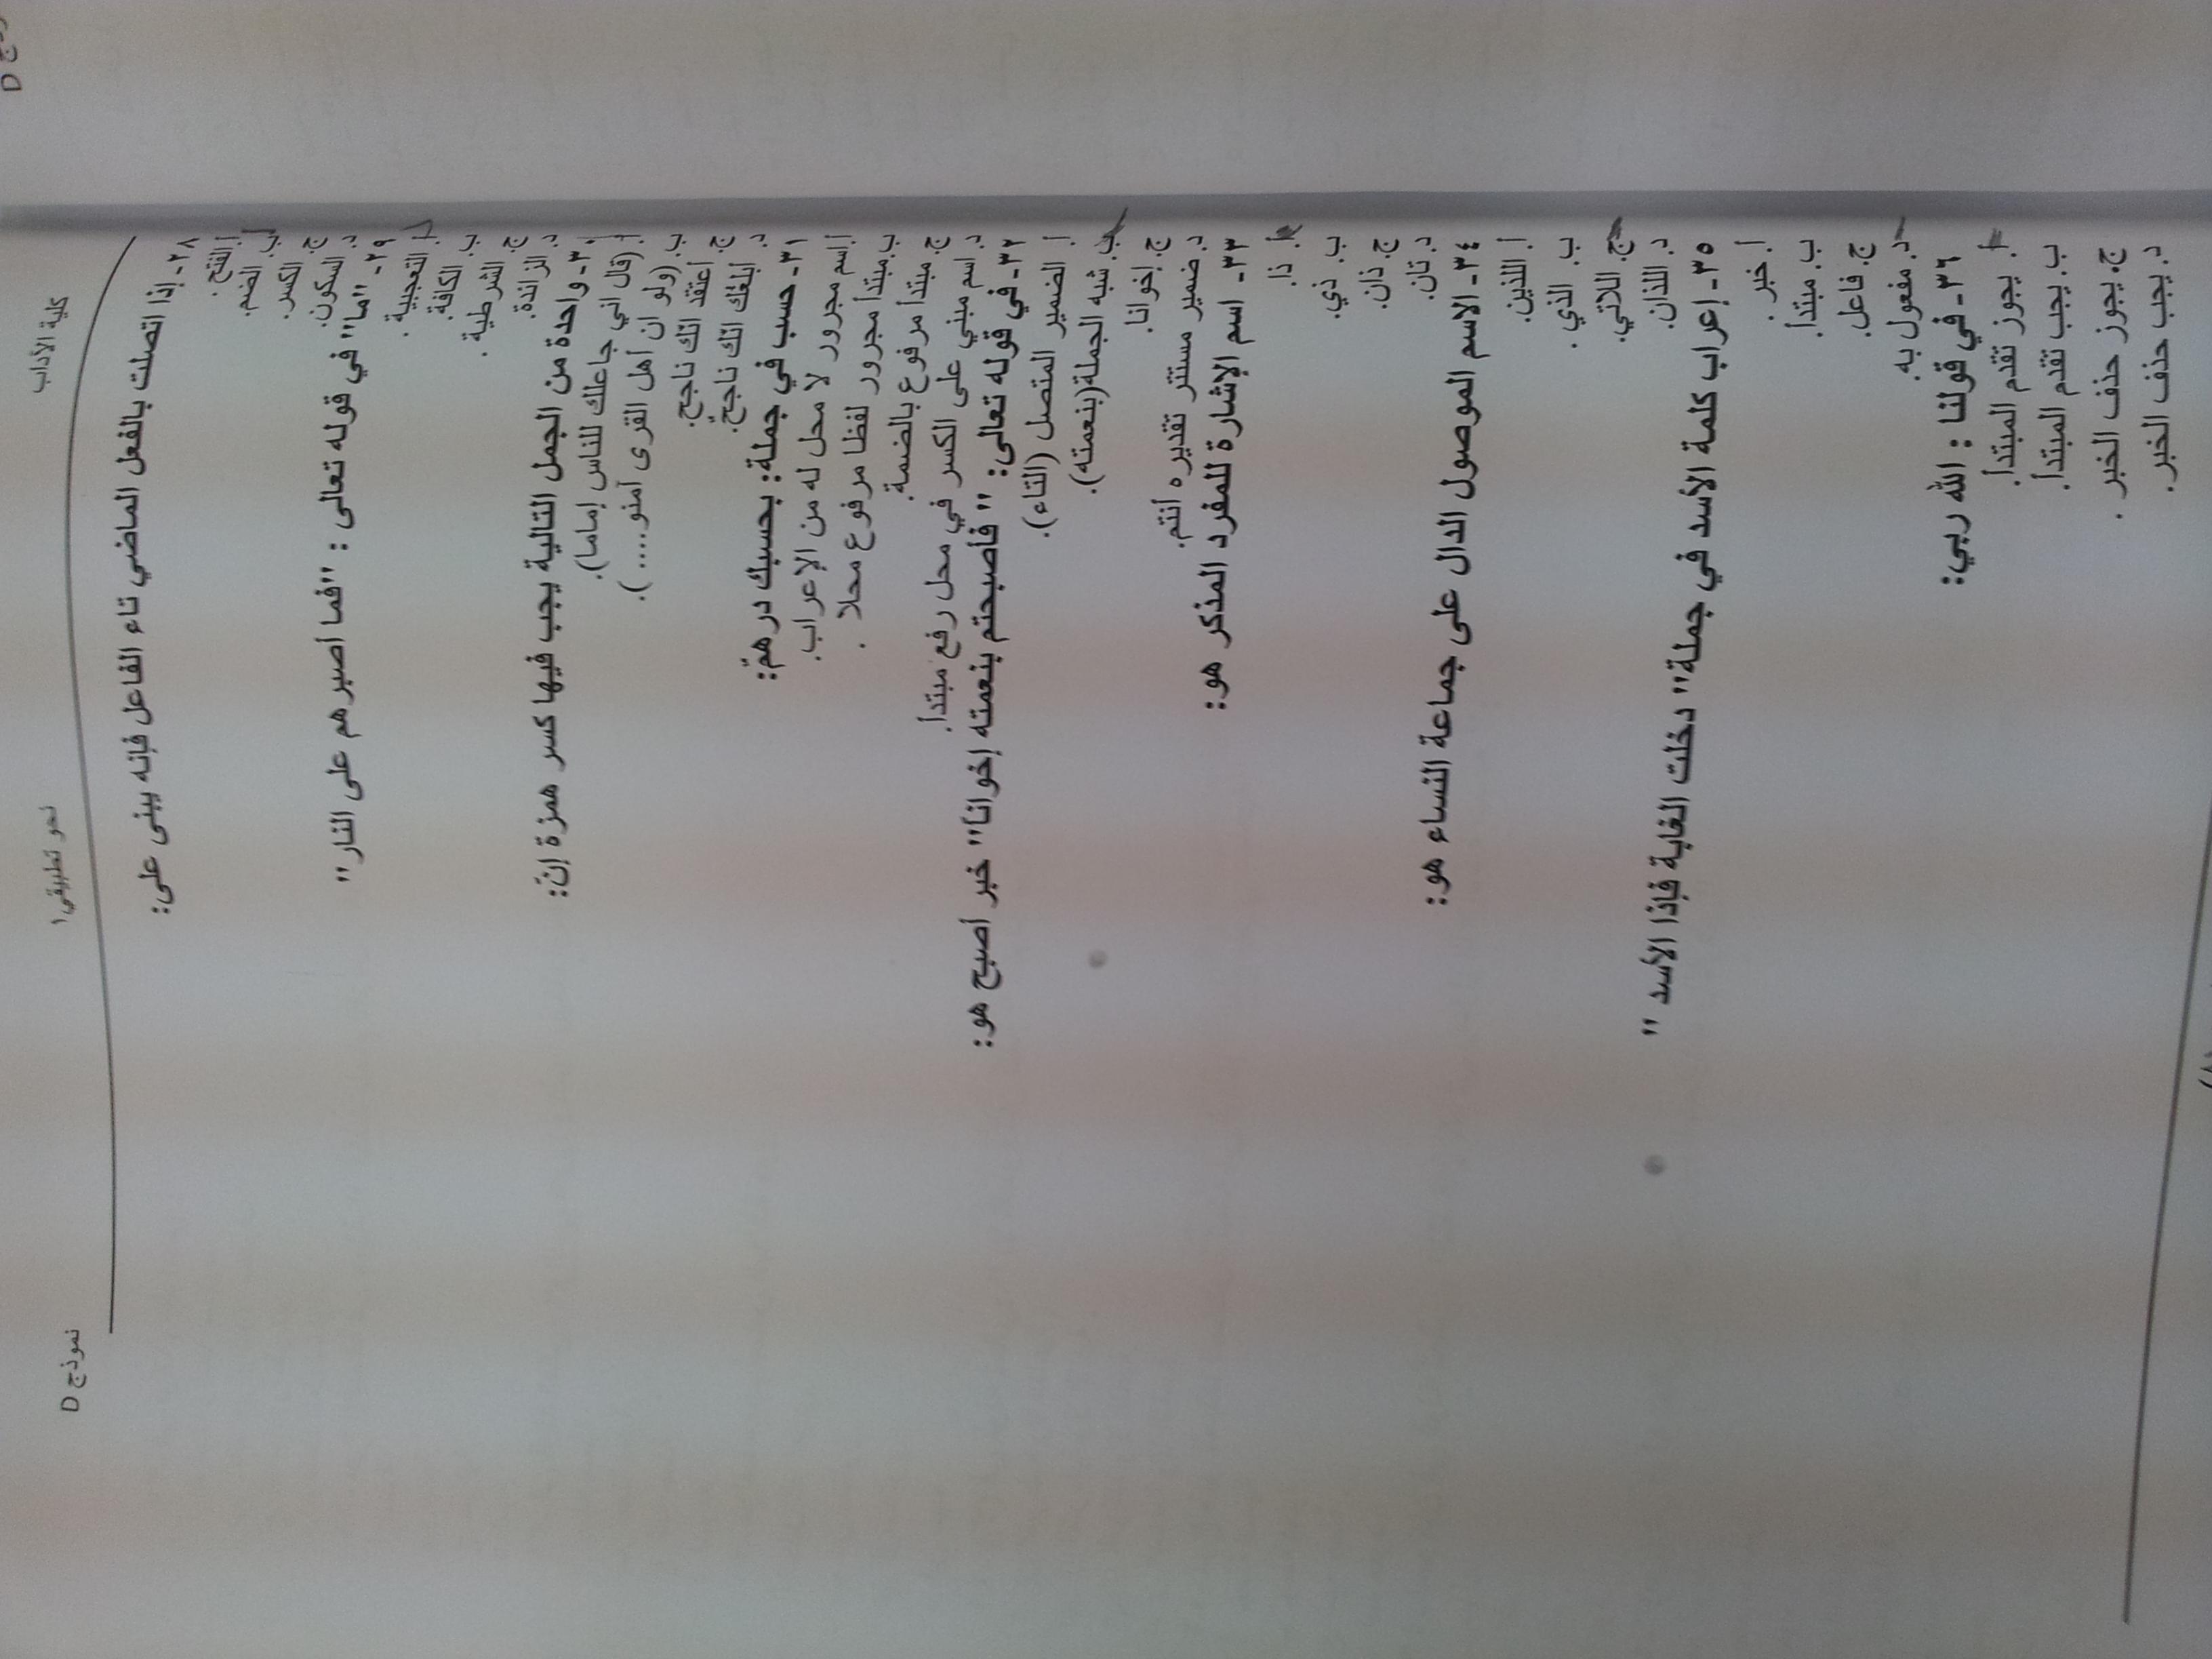 كلية الآداب نحو تطبيقي١ نموذج D
٢٨- إذا اتصلت بالفعل الماضي تاء الفاعل فإنه يبنى على:
أ. الفتح .
ب. الضم.
ج. الكسر.
د. السكون.
٢٩- "ما" في قوله تعالى : "فما أصبرهم على النار"
أ. التعجبية .
ب. الكافة.
ج. الشرطية .
د. الزائدة.
٣٠- واحدة من الجمل التالية يجب فيها كسر همزة إنّ:
أ. (قال اني جاعلك للناس إماما).
ب. (ولو ان أهل القرى آمنو.... ).
ج. أعتقد انّك ناجح.
د. أبلغك انّك ناجحّ.
٣١- حسب في جملة: بحسبك درهمّ:
أ. اسم مجرور لا محل له من الإعراب.
ب. مبتدأ مجرور لفظا مرفوع محلا .
ج. مبتدأ مرفوع بالضمة.
د. اسم مبني على الكسر في محل رفع مبتدأ.
٣٢- في قوله تعالى: " فأصبحتم بنعمته إخوانا" خبر أصبح هو:
أ. الضمير المتصل (التاء).
ب. شبه الجملة(بنعمته).
ج. إخوانا.
د. ضمير مستتر تقديره أنتم.
٣٣- اسم الإشارة للمفرد المذكر هو:
أ. ذا.
ب. ذي.
ج. ذان.
د. تان.
٣٤- الاسم الموصول الدال على جماعة النساء هو:
أ. اللذين.
ب. الذي .
ج. اللاتي.
د. اللذان.
٣٥- إعراب كلمة الأسد في جملة" دخلت الغابة فإذا الأسد "
أ. خبر .
ب. مبتدأ.
ج. فاعل.
د. مفعول به.
٣٦- في قولنا : الله ربي:
أ. يجوز تقدم المبتدأ.
ب. يجب تقدم المبتدأ.
ج. يجوز حذف الخبر .
د. يجب حذف الخبر.